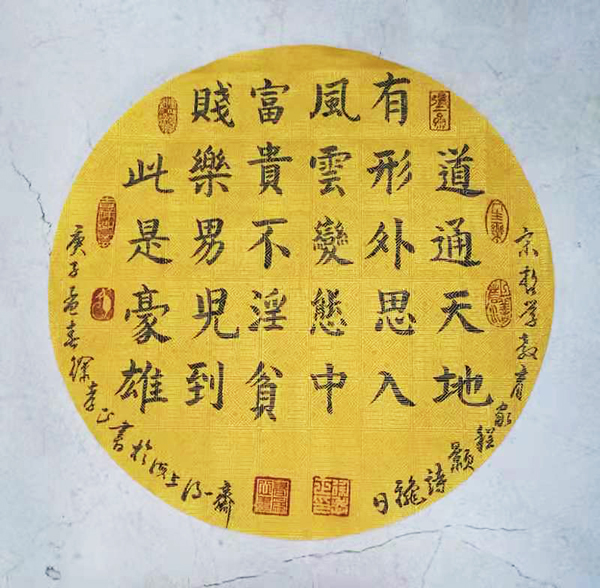 道通天地
有形外思入
風雲變態中
富貴不淫貧
賤樂男兒到
此是豪雄
宋哲學教育家程顥詩龝日
庚子孟春徐書於海上齋